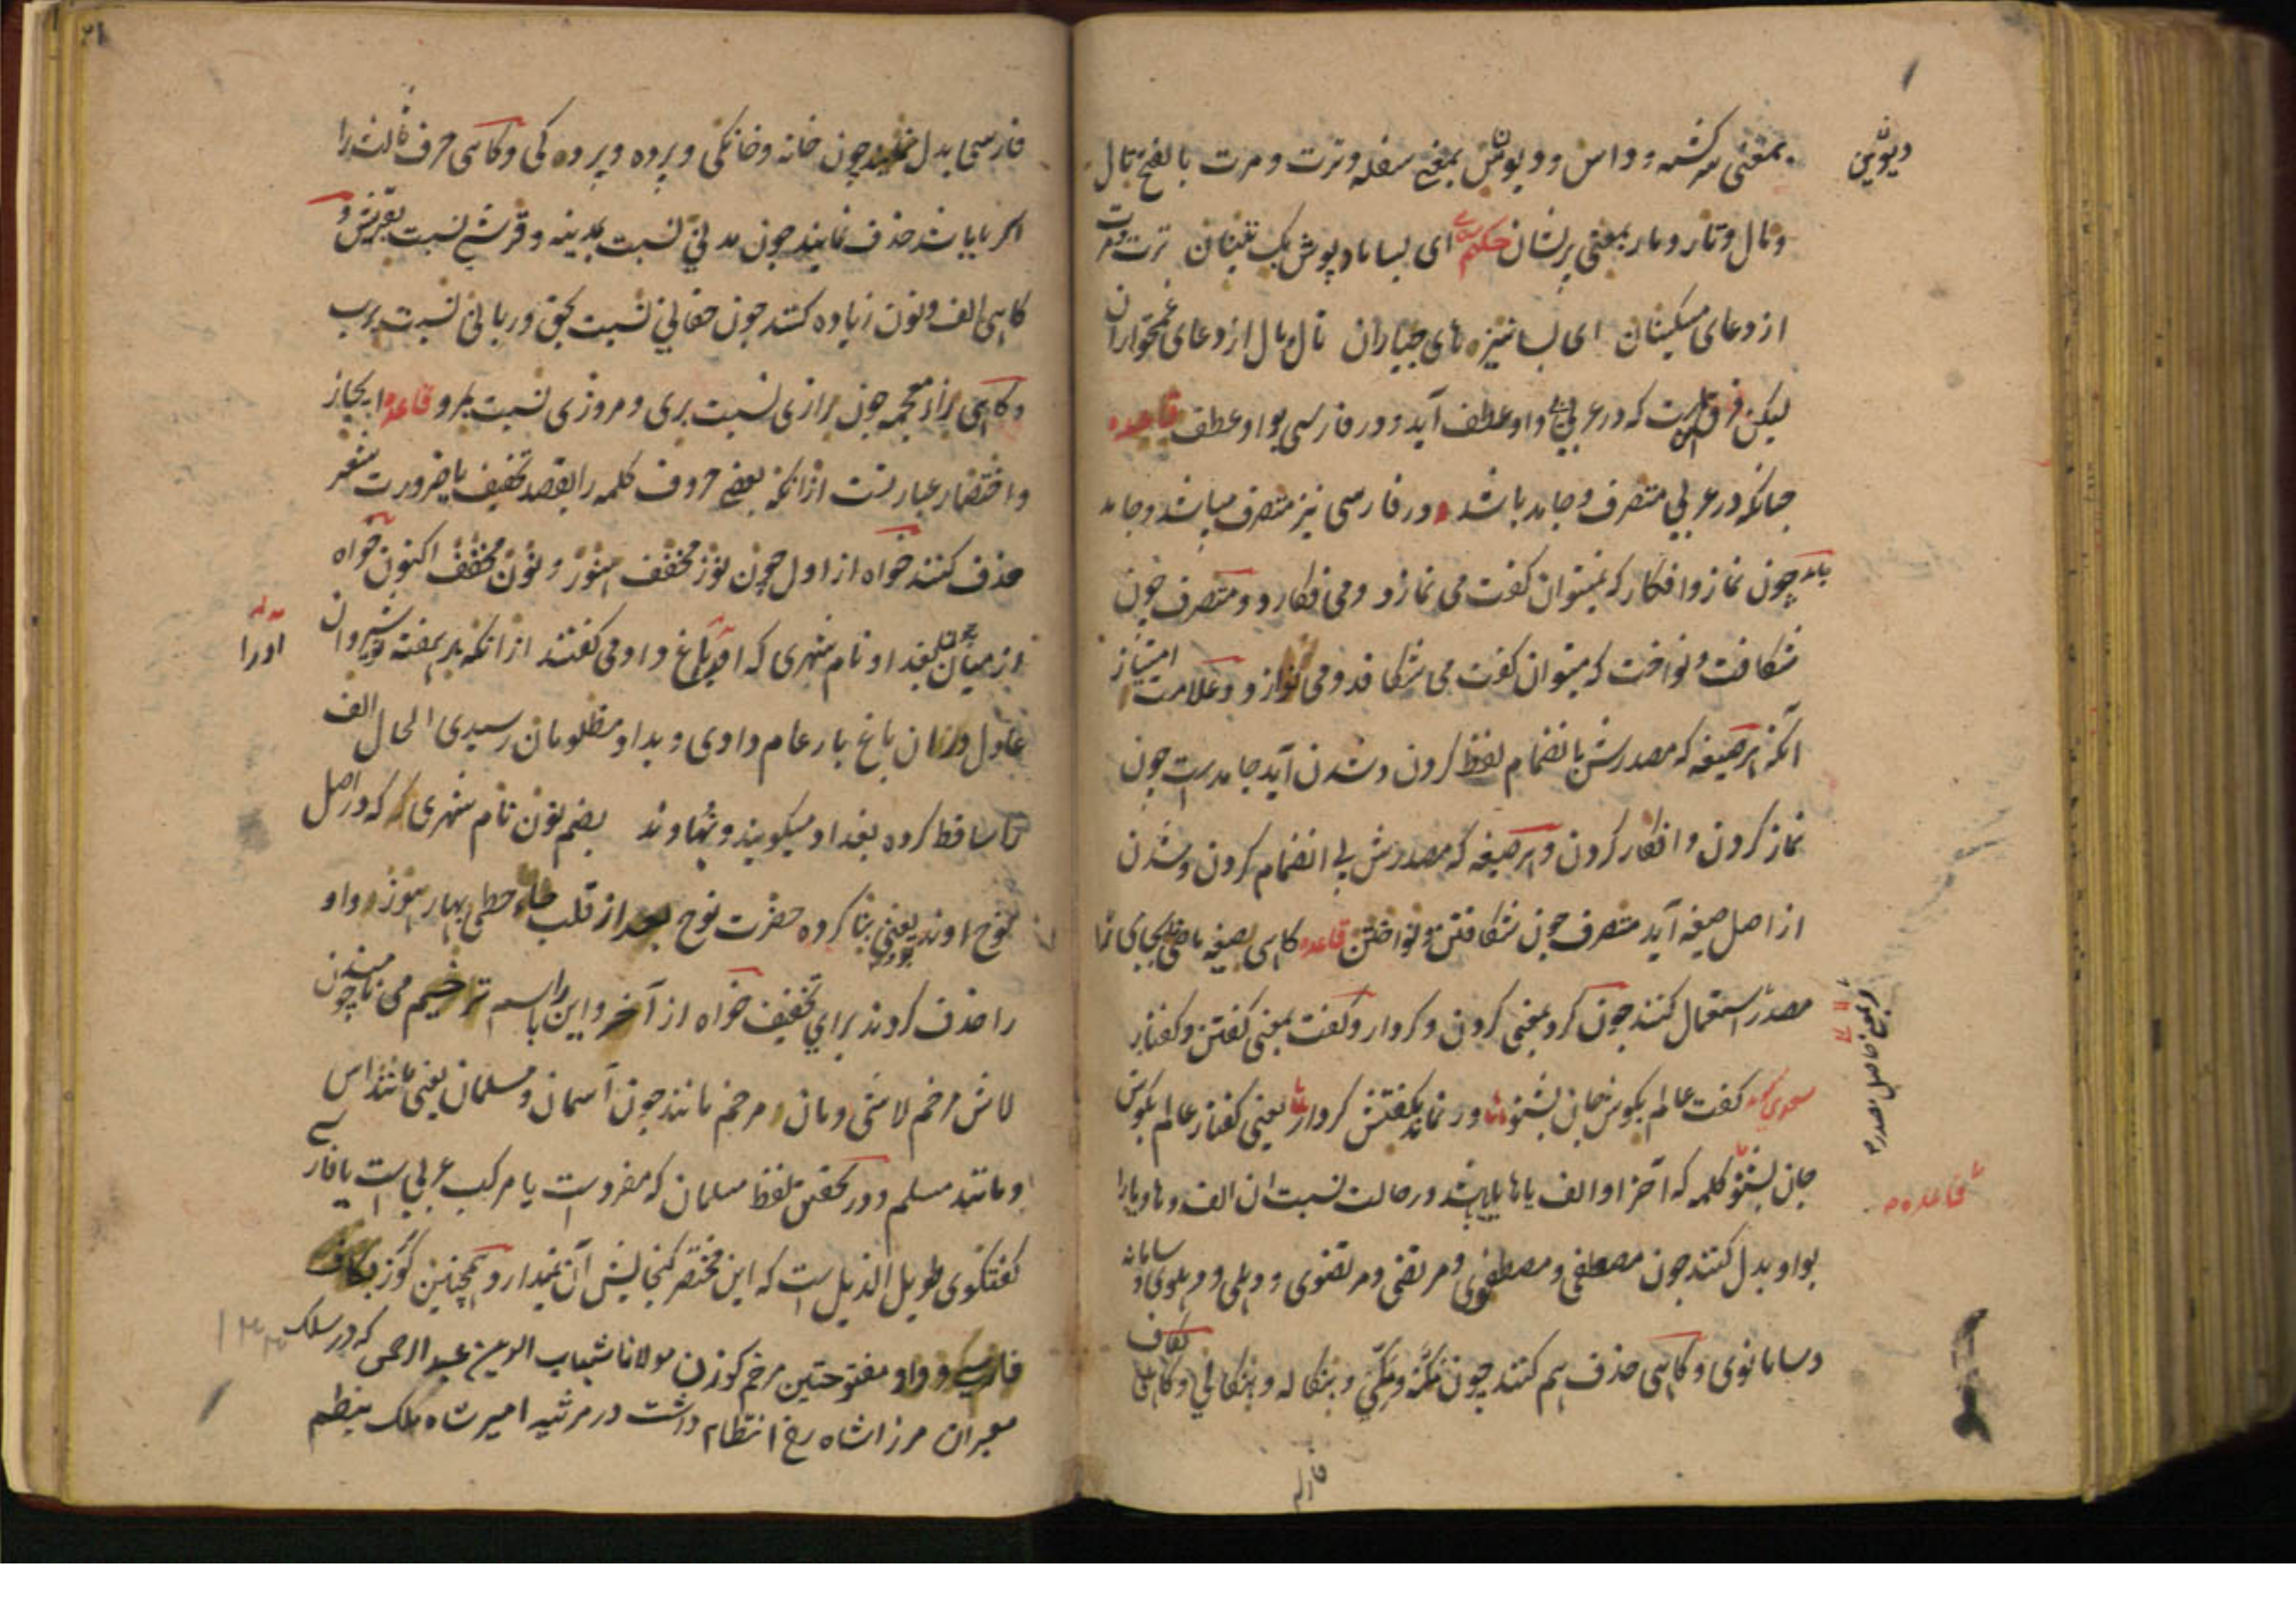 بمعنی سرگشته و داس و دیوش بمعنی سفله و ترت و مرت بالفتح تال
دیوثی
و مال و تار و مار بمعنی پریشان حکیم ای بسا باد و پوش یک تنینان ترت و مرت
از دعای مسکینان ای بسا نیزه های جباران تال مال از دعای غمخواران
لیکن فرق است که در عربی بی واو عطف آید و در فارسی بواو عطف قاعده
چنانکه در عربی متصرف و جامد باشد در فارسی نیز متصرف میباشد و جامد
جامد چون نماز و افکار که نمیتوان گفت می نمازد و می افکارد و متصرف چون
شکافت و نواخت که میتوان گفت می شکافد و می نوازد و علامت امتیاز
آنکه هر صیغه که مصدرش بانضمام لفظ کردن و شدن آید جامد ست چون
نماز کردن و افکار کردن و هر صیغه که مصدرش بی انضمام کردن و شدن
از اصل صیغه آید متصرف چون شکافتن و نواختن قاعده کاهی صیغه ماضی بجای
مصدر استعمال کنند چون کرد بمعنی کردن و کردار و گفت بمعنی گفتن و گفتار
حاصل مصدر
سعدی گفت عالم بگوش جان بشنو ور نماند بگفتنش کردار یعنی گفتار عالم بگوش
جان بشنو کلمه که آخر او الف یا ها یا یا باشد در حالت نسبت ان الف و ها و یا را
قاعده
بواو بدل کنند چون مصطفی و مصطفوی و مرتضی و مرتضوی و دهلی و دهلوی و سامانه
و سامانوی و کاهی حذف هم کنند چون مکه و مکی و بنکاله و بنکالی و کاهی بکاف
فارسی
فارسی بدل نمایند چون خانه و خانکی و پرده و پرده کی و کاهی حرف ثالث را
اگر یا باشد حذف نمایند چون مدنی نسبت بمدینه و قرشی نسبت بقریش و
کاهی الف و نون زیاده کنند چون حقانی نسبت بحق و ربانی نسبت برب
و کاهی زاء معجمه چون رازی نسبت بری و مروزی نسبت بمرو قاعده ایجاز
و اختصار عبارتست از آنکه بعضی حروف کلمه را بقصد تخفیف یا ضرورت شعر
حذف کنند خواه از اول چون نوز مخفف هنوز و نون مخفف اکنون خواه
از میان چون بغداد نام شهری که او را باغ داد می گفتند از آنکه هر هفته نوشیروان
اورا
عادل در ان باغ بار عام دادی و بداد مظلومان رسیدی الحال الف
را ساقط کرده بغداد میگویند و نهاوند بضم نون نام شهری که در اصل
نوح اوند بود یعنی بنا کرده حضرت نوح بعد از قلب حاء حطی بهاء هوز واو
را حذف کردند برای تخفیف خواه از آخر و این را باسم ترخیم می نامند چون
لاش مرخم لاشی و مان مرخم مانند چون آسمان و مسلمان یعنی مانند اس
و مانند مسلم و در تحقیق لفظ مسلمان که مفردست یا مرکب عربی است یا فارسی
گفتگوی طویل الذیل است که این مختصر گنجایش آن ندارد و همچنین گوز بکاف
فارسی و واو مفتوحتین مرخم گوزن مولانا شهاب الدین عبد الرحمن که در سلک
معبران مرزا شاه رخ انتظام داشت در مرثیه امیر شاه ملک بنظم